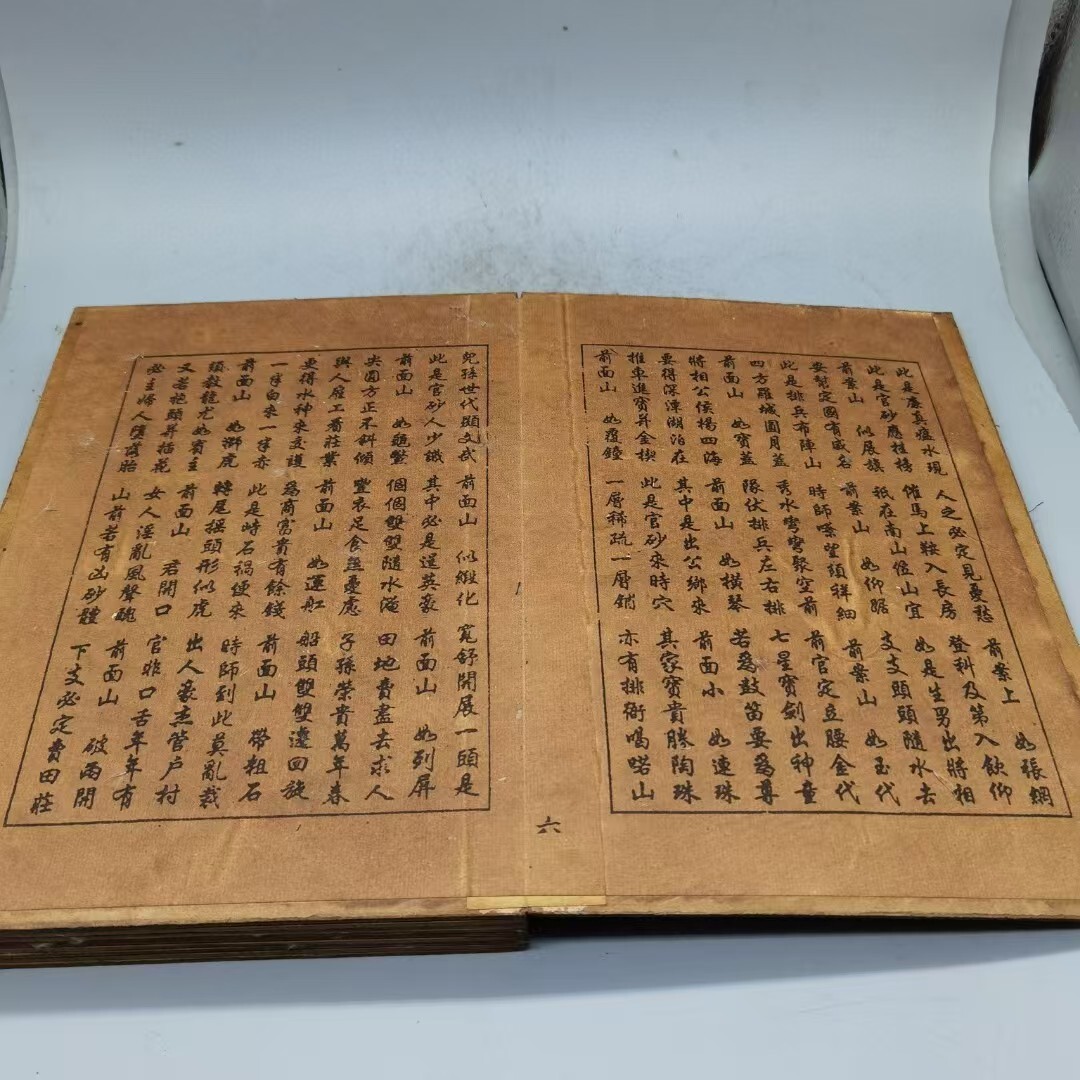 此是廉真瘟水現 人之必定見憂愁 前案上 如張網
此是官砂應挂榜 催馬上鞍入長房 登科及第入飲仰
前案山 似展旗 祇在南山侄山宜 如是生男出將相
安幇定國有威名 前案山 如仰踞 支支頭頭隨水去
此是排兵布陣山 時師嗦望須祥細 前案山 如玉代
四方羅城圓月蓋 秀水彎彎聚空前 前官定立腰金代
前面山 如寳蓋 隊伏排兵左右排 七星寳劍出神童
將相公侯楊四海 前面山 如橫琴 若為鼓笛要為尊
要得深潭湖泊在 其中是出公鄉來 前面小 如連珠
推車進寳并金楔 此是官砂來時穴 其家寳貴勝陶珠
前面山 如覆鐘 一層稀疏一層鋪 亦有排衙喝喏山
六
兒孫世代顯文武 前面山 似緞化 寬舒開展一頭是
此是官砂人少識 其中必是逞英豪 前面山 如列屏
前面山 如龜鱉 個個雙雙隨水淹 田地賣盡去求人
尖圓方正不斜傾 豐衣足食無憂慮 子孫榮貴萬年春
與人雇工看莊業 前面山 如運舡 船頭雙雙邊回旋
更得水神來交護 為商富貴有餘錢 前面山 帶粗石
一半白來一半赤 此是時石禍便來 時師到此莫亂裁
前面山 如獅虎 轉尾摇頭形似虎 出人豪杰管户村
頭教龍尤如賓主 前面山 若開口 官非口舌年年有
又若抱頭并插花 女人淫亂風聲醜 前面山 破兩開
必主婦人墮落胎 山前若有凶砂體 下支必定賣田莊